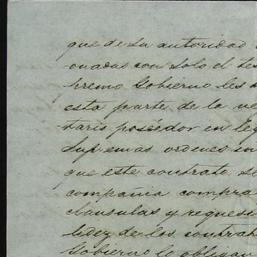 que de su autoridad
onadas con solo el des
premo Gobierno les
esta parte, de la ve
tario poseedor en leg
Supremas ordenes en
que este contrato se
compañia compra
clausulas y requisi
ledez de los contrat
Gobierno lo obligan